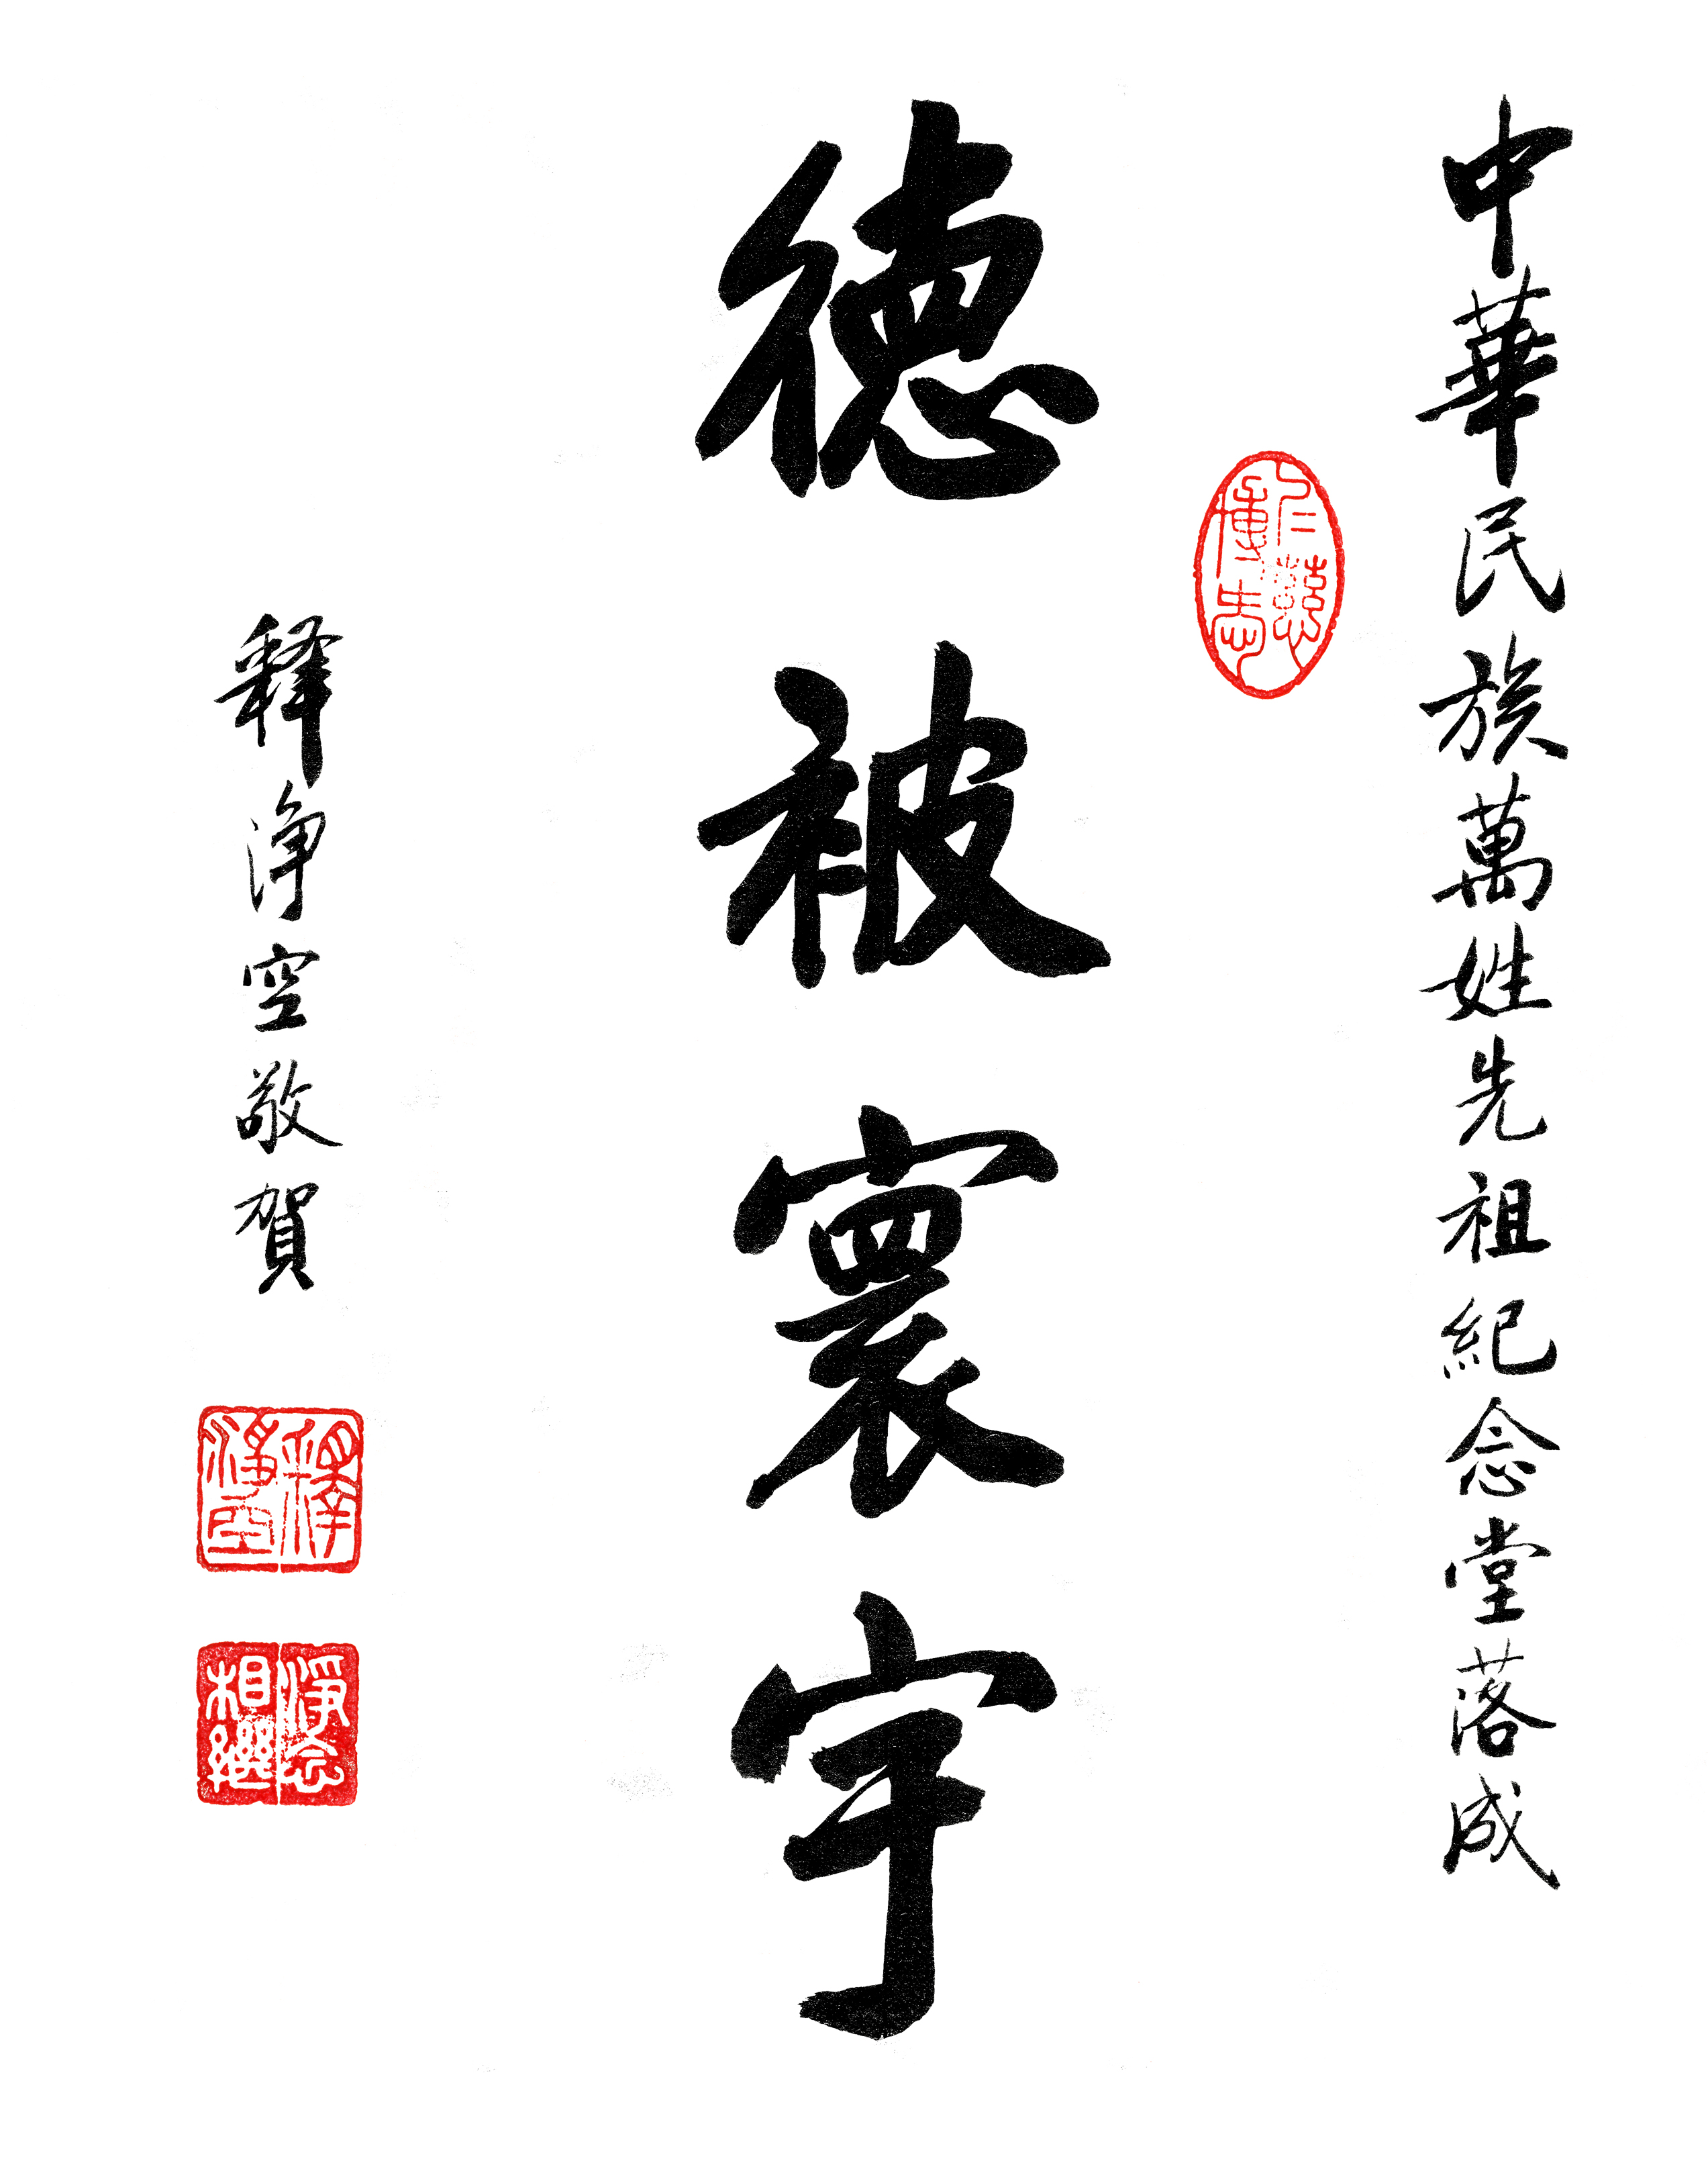 中華民族萬姓先祖紀念堂落成
仁慈博愛
德被寰宇
释淨空敬賀
釋淨空
淨念相繼